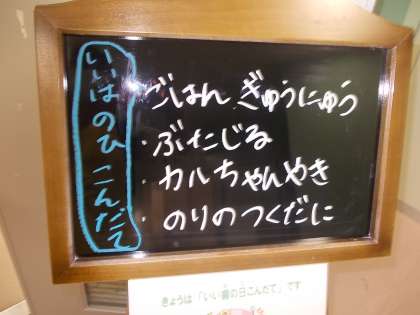 いいはのひこんだて
・ごはん ぎゅうにゅう
・ぶたじる
・カルちゃんやき
・のりのつくだに
きょうは「いい歯の日こんだて」です